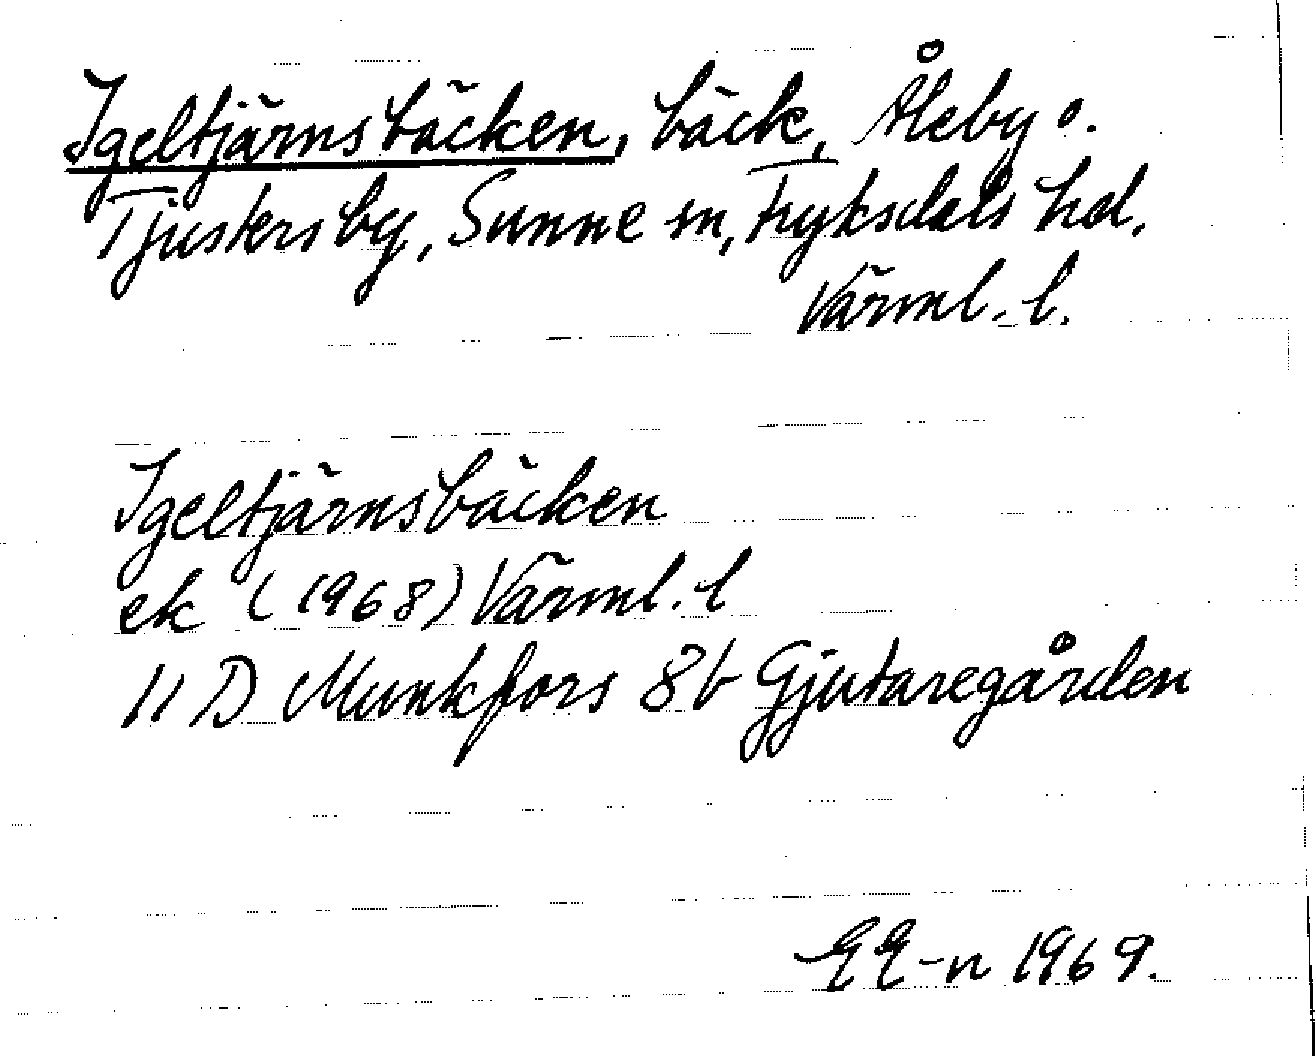 Igeltjärnsbäcken, bäck, Åleby o.
Tjustersby, Sunne sn, Fryksdals hd,
Värml. l.
Igeltjärnsbäcken
ek (1968) Värml. l
11 D Munkfors 8b Gjutaregården
EE-n 1969.